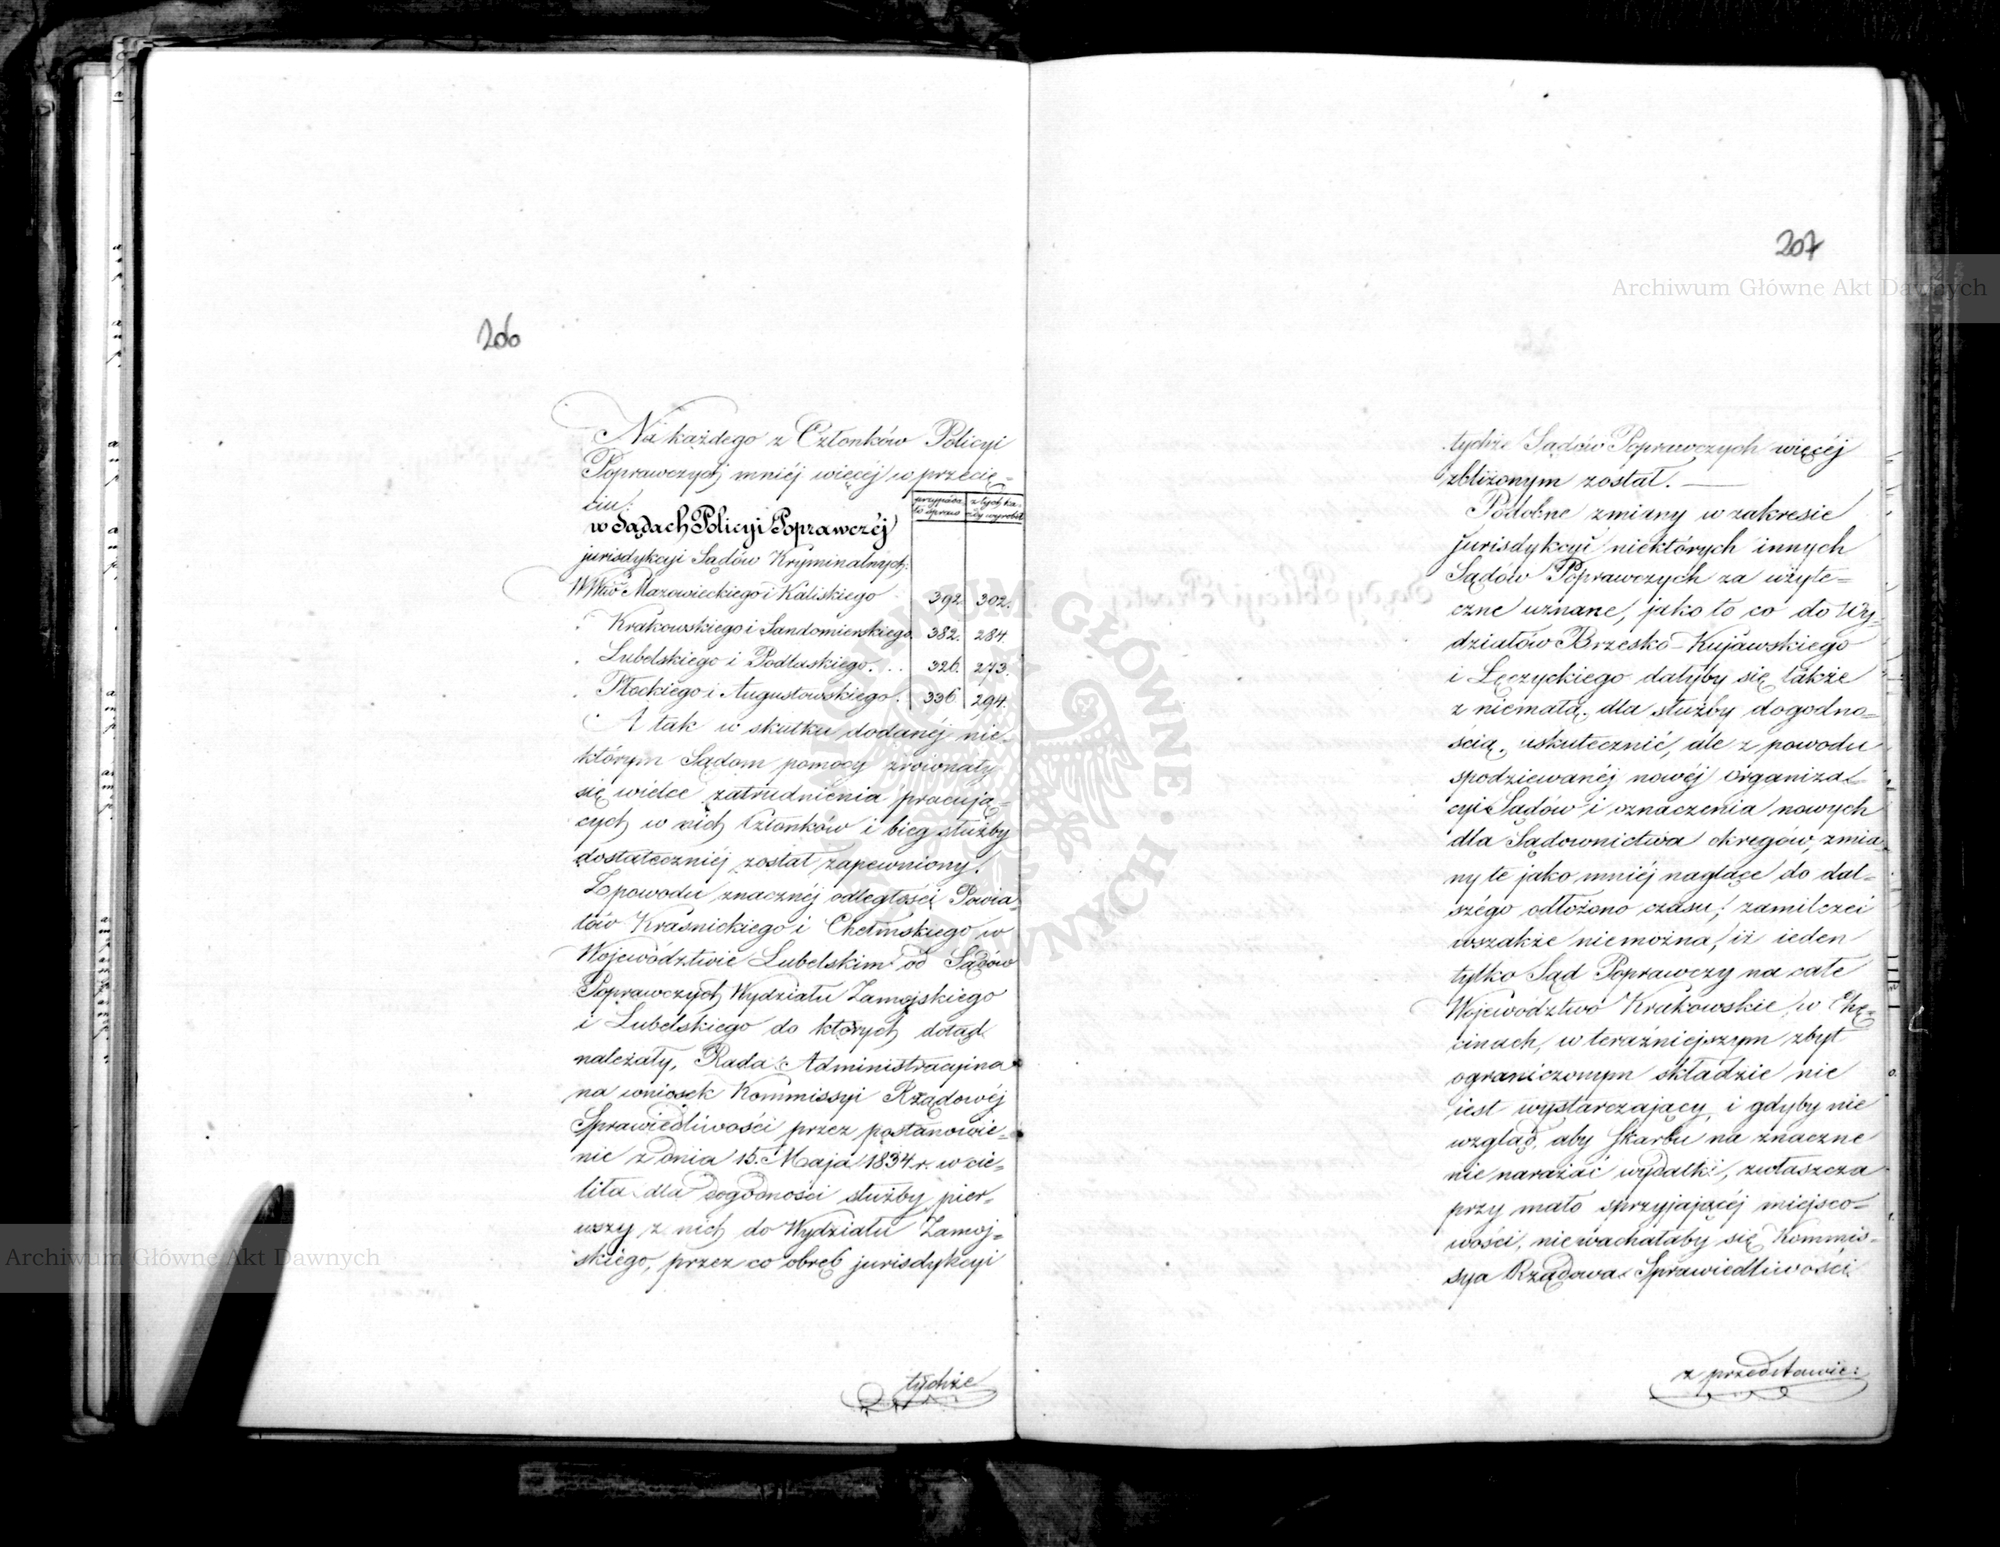 206
Na każdego z Członków Policyi
Poprawczych mniéj więcéj w przecię-
ciu:
przypada-
ło spraw
z tych ka-
żdy wyrobił
w Sądach Policyi Poprawczéj
jurisdykcyi Sądów Kryminalnych:
WWdw Mazowieckiego i Kaliskiego 392. 302.
" Krakowskiego i Sandomierskiego 382. 284.
" Lubelskiego i Podlaskiego. . . 326. 273.
" Płockiego i Augustowskiego. 336. 294.
A tak w skutku dodanéj nie-
którym Sądom pomocy zrównały
się wielce zatrudnienia pracują-
cych w nich Członków i bieg służby
dostateczniéj został zapewniony.
Z powodu znacznéj odległości Powia-
tów Kraśnickiego i Chełmskiego w
Województwie Lubelskim od Sądów
Poprawczych Wydziału Zamojskiego
i Lubelskiego do których dotąd
należały, Rada Administracyjna
na wniosek Kommissyi Rządowéj
Sprawiedliwości przez postanowie-
nie z dnia 15. Maja 1834 r. wcie-
liła dla dogodności służby pier-
wszy z nich do Wydziału Zamoj-
skiego, przez co obręb jurisdykcyi
tychże
207
tychże Sądów Poprawczych więcéj
zbliżonym został. —
Podobne zmiany w zakresie
jurisdykcyi niektórych innych
Sądów Poprawczych za użyte-
czne uznane, jako to co do Wy-
działów Brzesko-Kujawskiego
i Łęczyckiego dałyby się także
z niemałą dla służby dogodno-
ścią uskutecznić, ale z powodu
spodziewanéj nowéj organiza-
cyi Sądów i oznaczenia nowych
dla Sądownictwa okręgów, zmia-
ny te jako mniéj naglące do dal-
szégo odłożono czasu; zamilczeć
wszakże niemożna, iż ieden
tylko Sąd Poprawczy na całe
Województwo Krakowskie, w Chę-
cinach, w teraźniejszym zbyt
ograniczonym składzie nie
iest wystarczający, i gdyby nie
wzgląd, aby Skarbu na znaczne
nie narażać wydatki, zwłaszcza
przy mało sprzyjającéj miejsco-
wości, nie wachałaby się Kommis-
sya Rządowa Sprawiedliwości
z przedstawie:
Archiwum Główne Akt Dawnych
Archiwum Główne Akt Dawnych